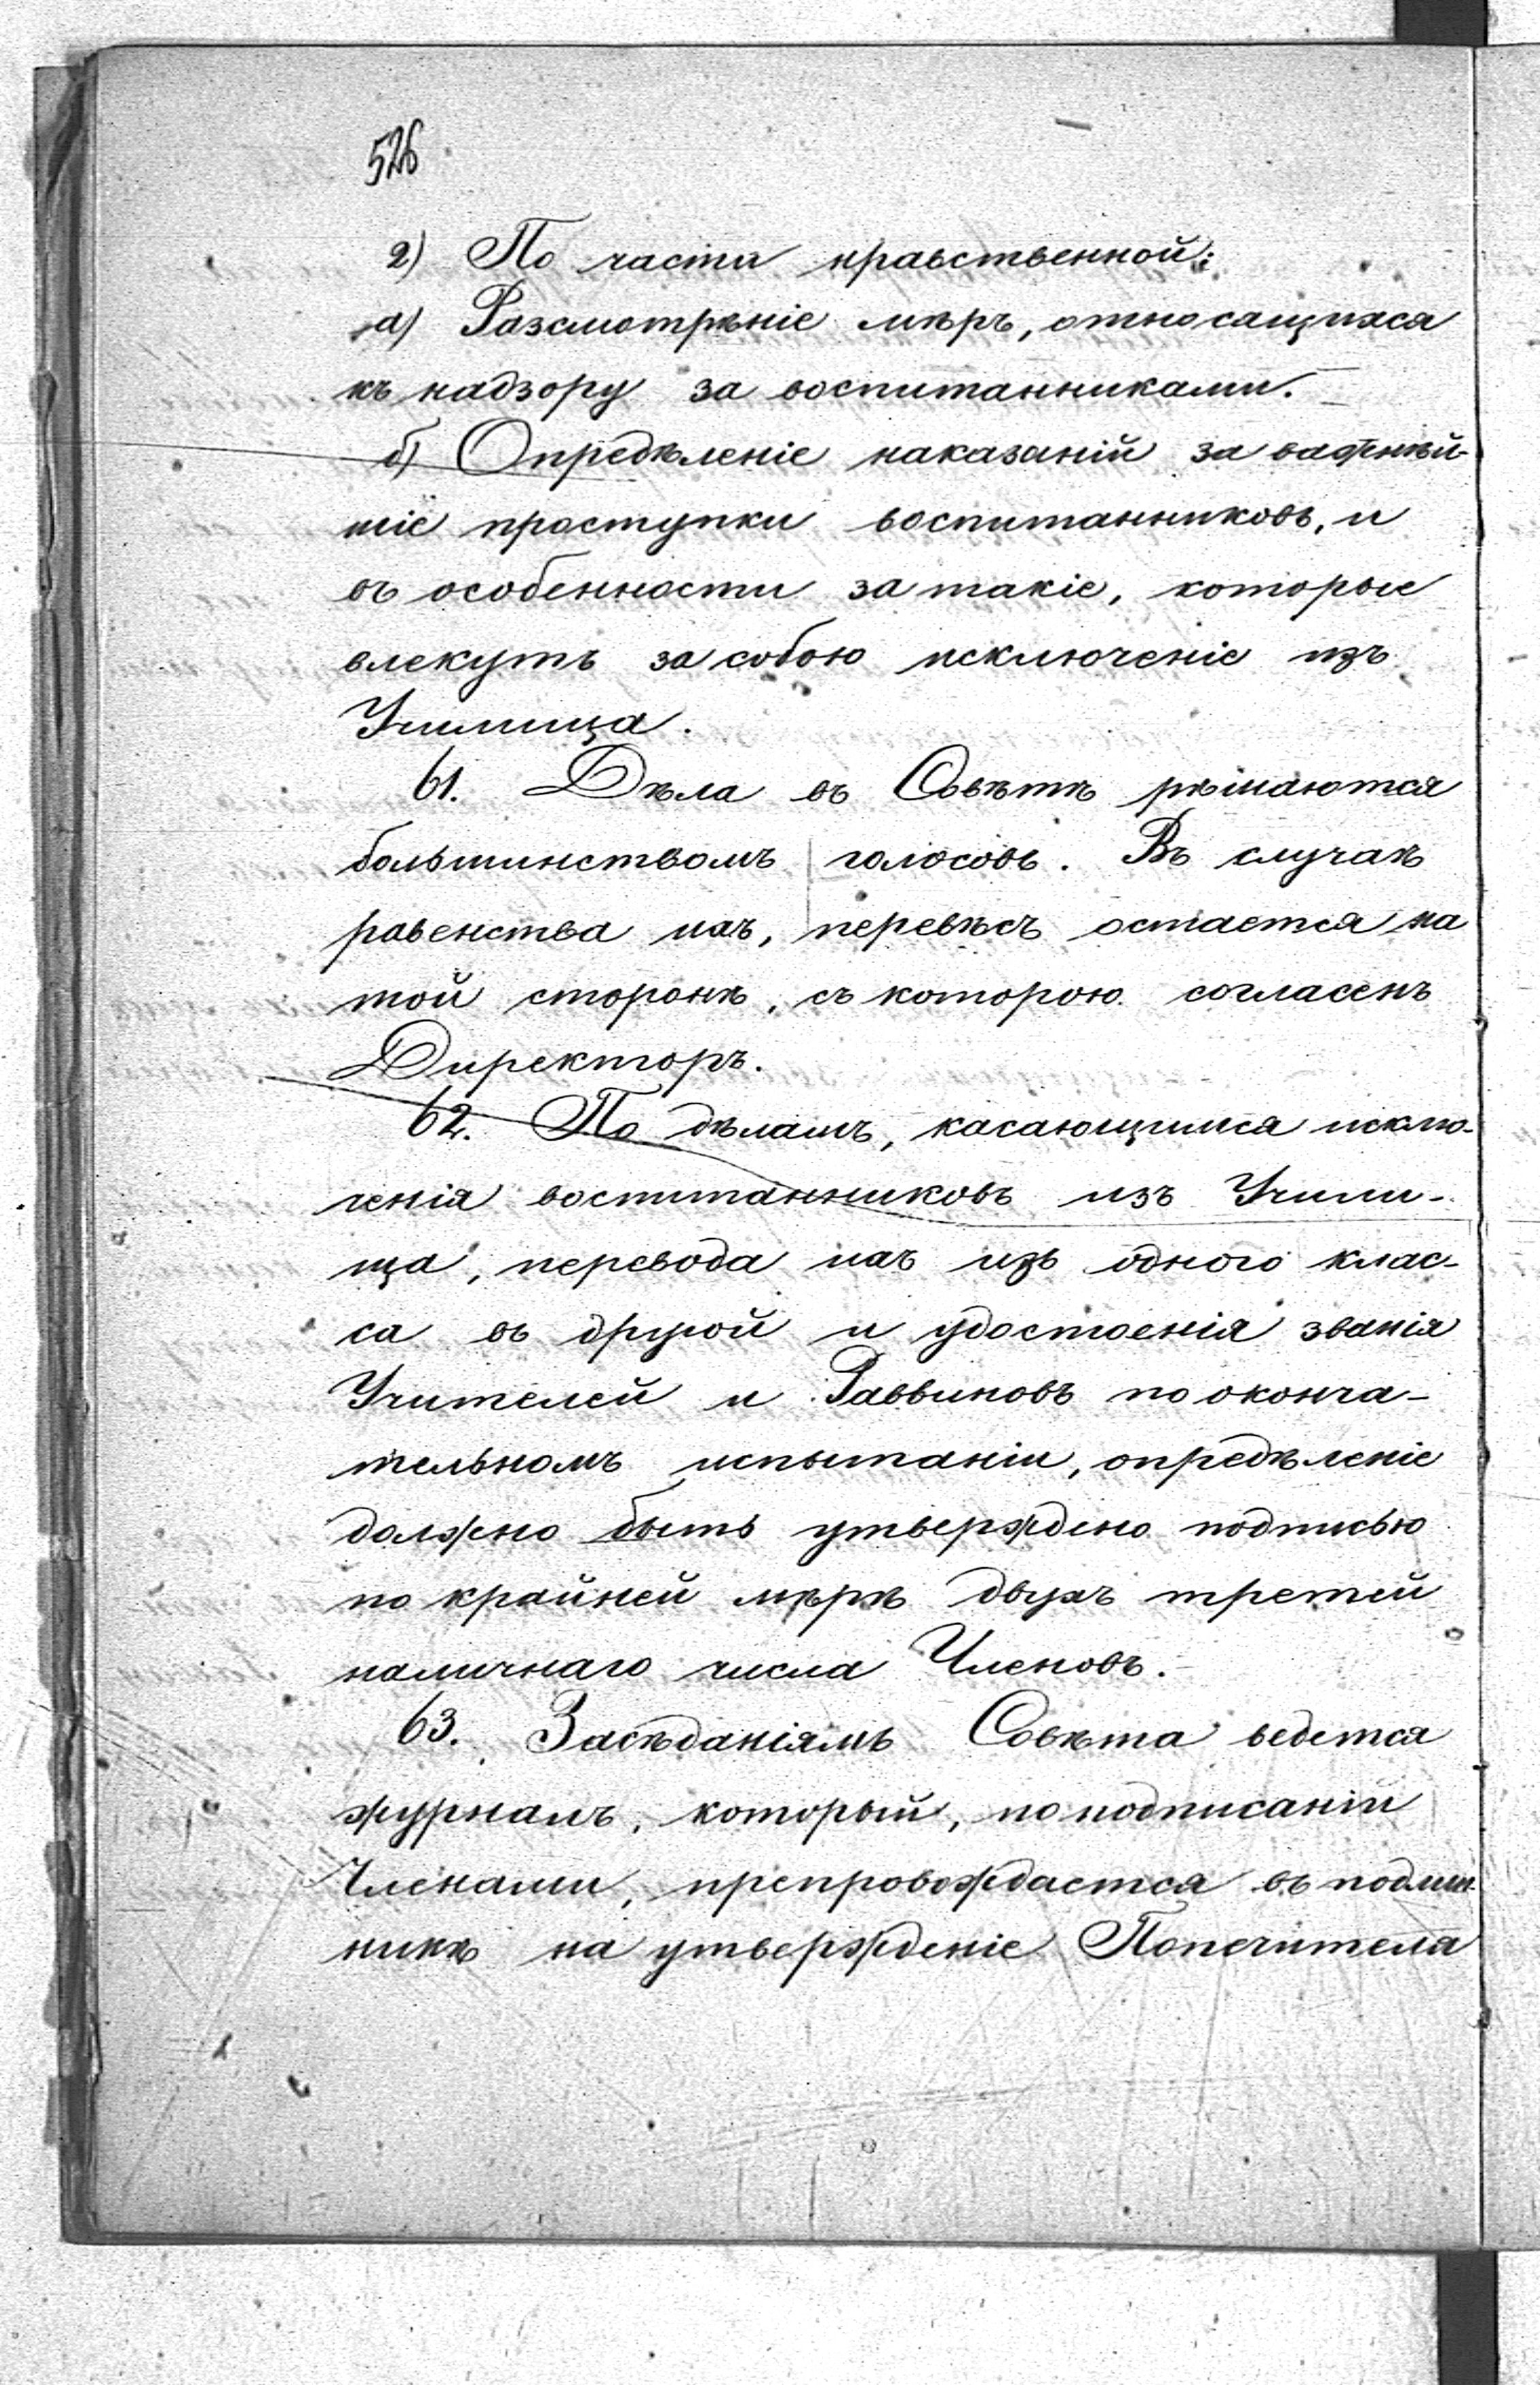 526
2) По части нравственной:
а) Разсмотрѣніе мѣръ, относящихся
къ надзору за воспитанниками.
б) Опредѣленіе наказаній за важнѣй-
шіе проступки воспитанниковъ, и
въ особенности за такіе, которые
влекутъ за собою исключеніе изъ
Училища.
61. Дѣла въ Совѣтѣ рѣшаются
большинствомъ голосовъ. Въ случаѣ
равенства ихъ, перевѣсъ остается на
той сторонѣ, съ которою согласенъ
Директоръ.
62. По дѣламъ, касающимся исклю-
ченія воспитанниковъ изъ Учили-
ща, перевода ихъ изъ одного клас-
са въ другой и удостоенія званія
Учителей и Раввиновъ по оконча-
тельномъ испытаніи, опредѣленіе
должно быть утверждено подписью
по крайней мѣрѣ двухъ третей
наличнаго числа Членовъ.
63. Засѣданіямъ Совѣта ведется
журналъ, который, по подписаніи
Членами, препровождается въ подлин-
никѣ на утвержденіе Попечителя